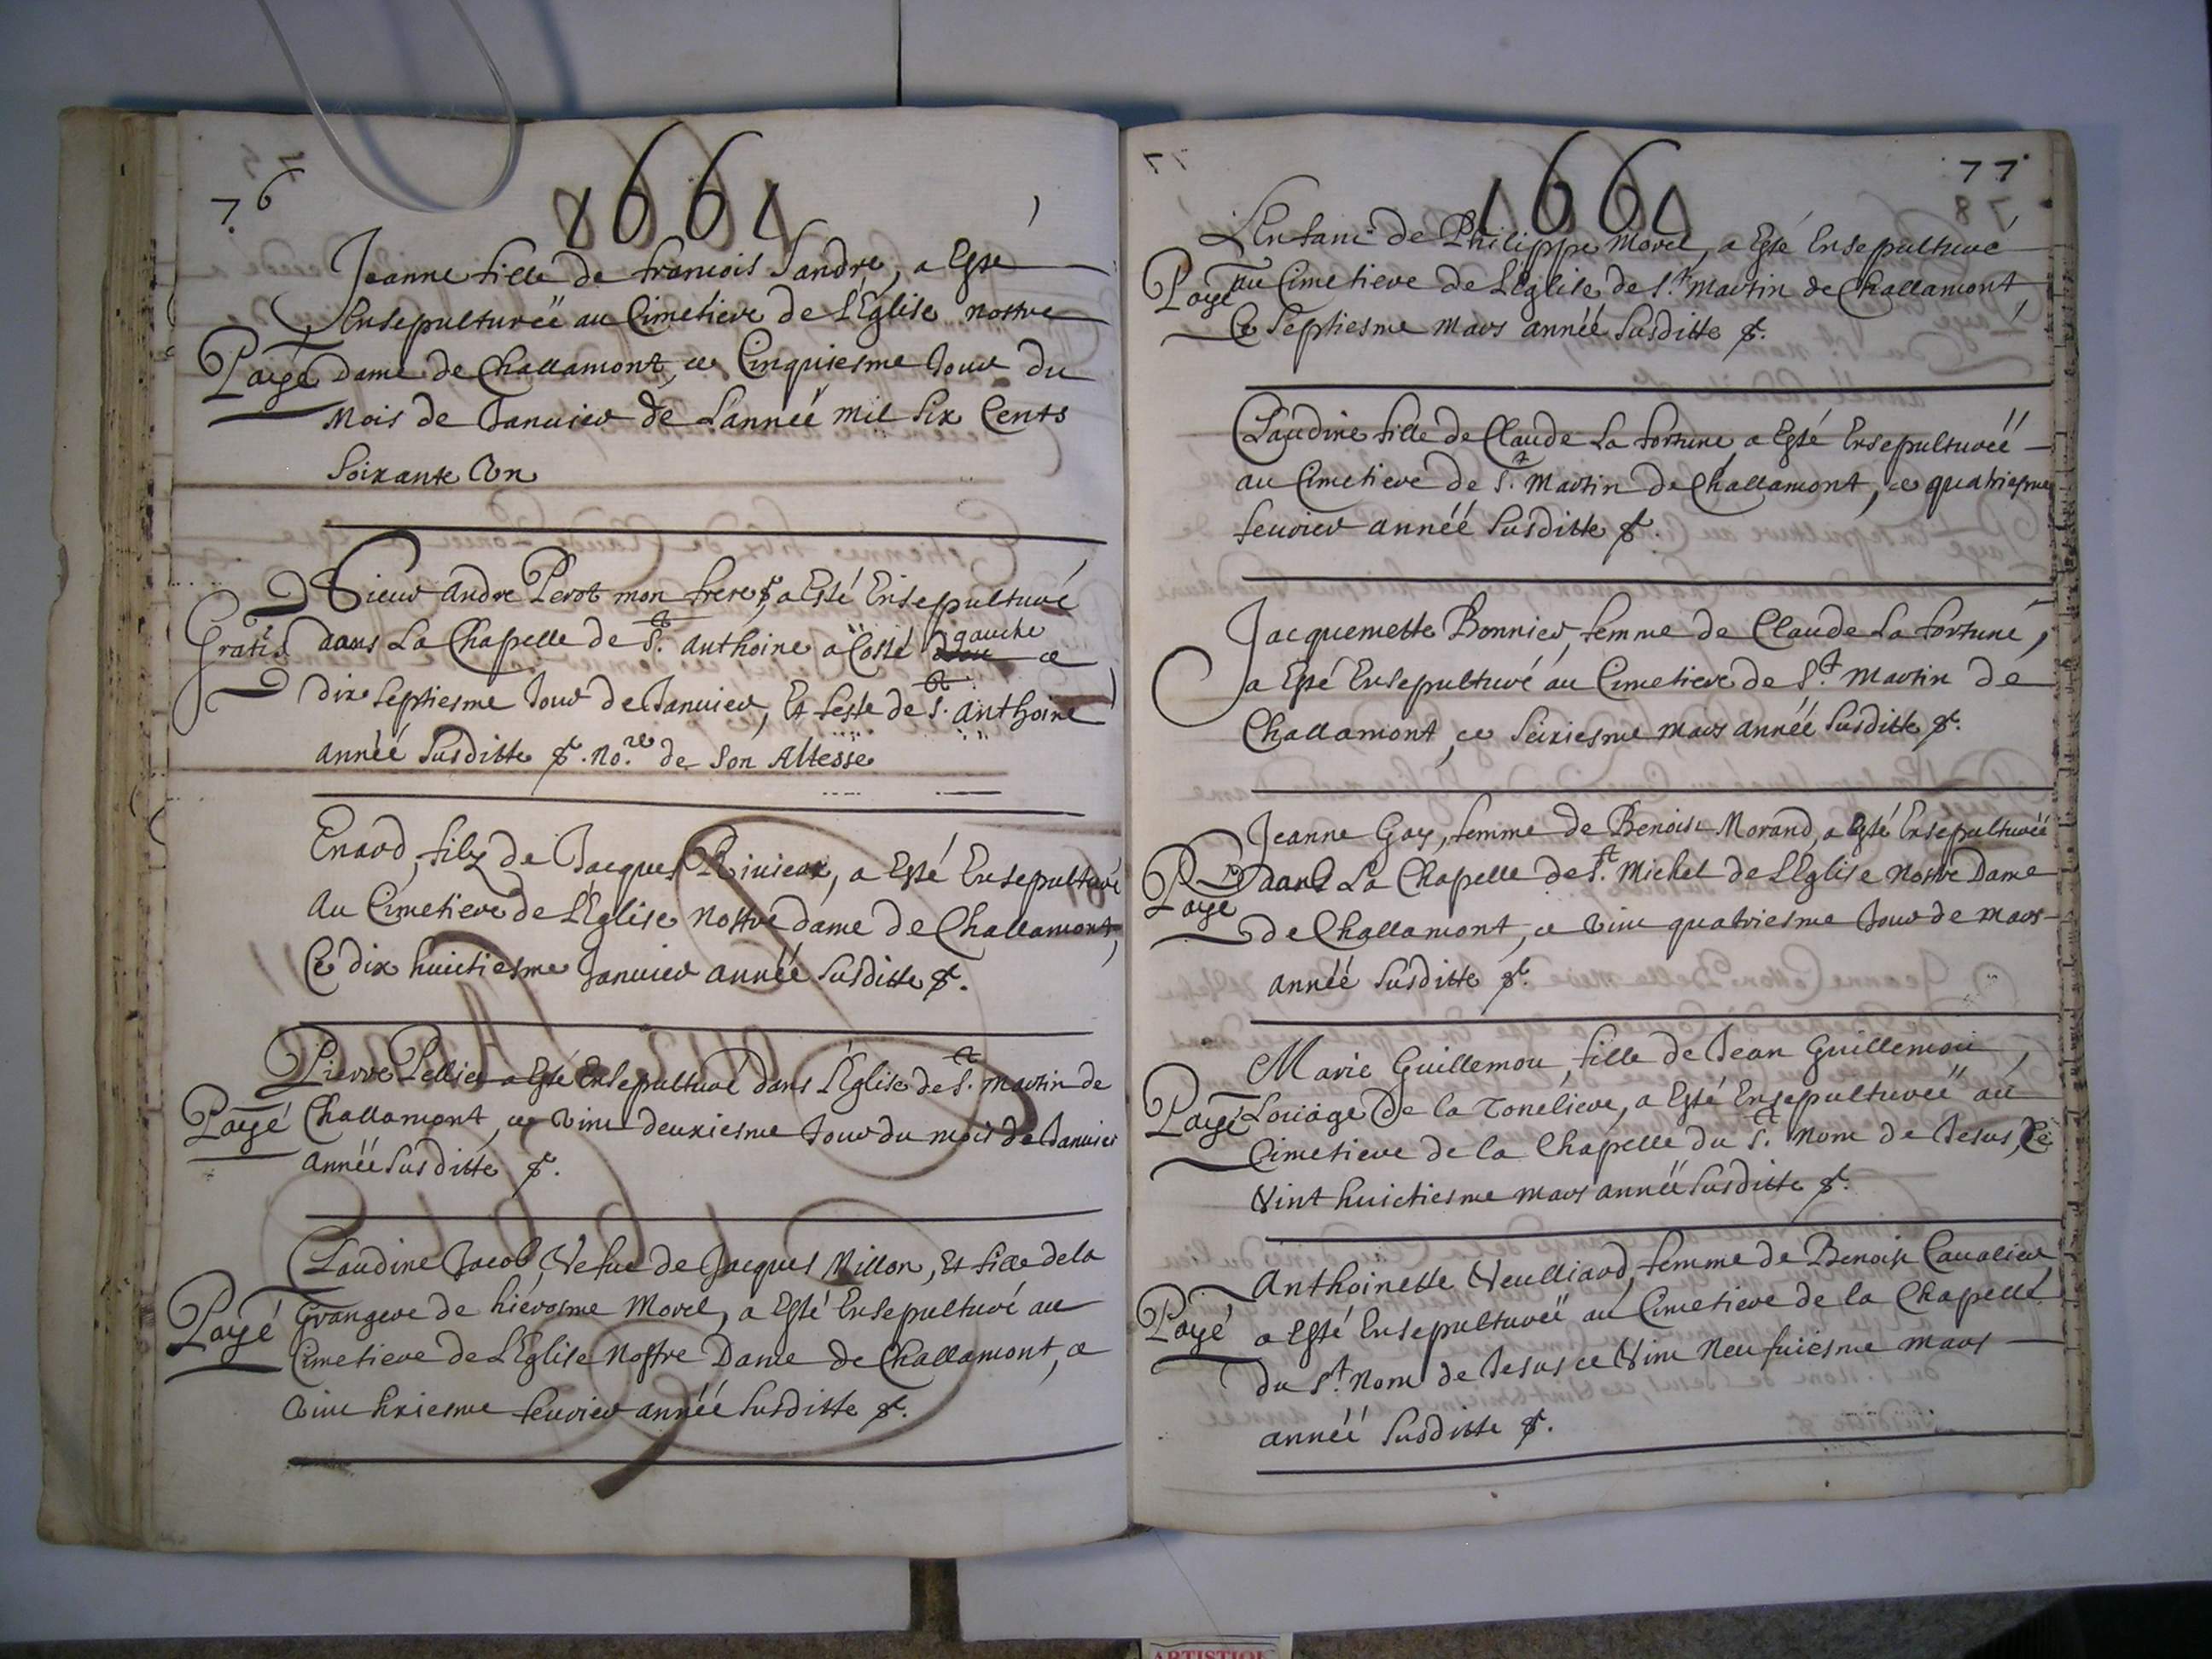 76
1661
Jeanne fille de francois Sandre, a Esté
Ensepulturéë au Cimetiere de L'Eglise nostre
Payé Dame de Challamont, ce Cinquiesme Jour du
Mois de Januier de L'annéë mil six Cents
Soixante Un
Sieur Andre Perot mon frere, a Esté Ensepulturé
Gratis dans La Chapelle de St. Anthoine a Costé gauche ce
dix septiesme Jour de Januier, Et feste de St. Anthoine
annéé susditte &. No.re de Son Altesse
Enard, filz de Jacques Riuieux, a Esté Ensepulturé
Au Cimetiere de L'Eglise Nostre dame de Challamont,
Ce dix huictiesme Januier annéé susditte &.
Pierre Pellier a Esté Ensepulturé dans L'Eglise de St. Martin de
Payé Challamont, ce vint deuxiesme Jour du mois de Januier
annéë susditte &.
Claudine Jacob, Vefue de Jacques Millon, Et fille de la
Payé Grangere de hierosme Morel, a Esté Ensepulturé au
Cimetiere de L'Eglise Nostre Dame de Challamont, ce
vint sixiesme feurier annéé susditte &.
77
1661
L'Enfant de Philippe Morel, a Esté Ensepulturé
Payé au Cimetiere de L'Eglise de St. Martin de Challamont
Ce Septiesme Mars annéé susditte &.
Claudine fille de Claude La fortune, a Esté Ensepulturéé
au Cimetiere de St. Martin de Challamont, ce quatriesme
feurier annéé susditte &.
Jacquemette Bonnier, femme de Claude La fortune,
a Esté Ensepulturé au Cimetiere de St. Martin de
Challamont, ce seiziesme Mars annéé susditte &.
Jeanne Gay, femme de Benoist Morand, a Esté Ensepulturéé
Payé dans La Chapelle de St. Michel de L'Eglise Nostre Dame
de Challamont, ce vint quatriesme Jour de Mars
annéé susditte &.
Marie Guillemou, fille de Jean Guillemou,
Payé Louäge de la Toneliere, a Esté Ensepulturéë au
Cimetiere de la Chapelle du St. Nom de Jesus, Ce
Vint huictiesme Mars annéë susditte &.
Anthoinette Veulliard, femme de Benoist Caualier
Payé a Esté Ensepulturéë au Cimetiere de la Chapelle
du St. Nom de Jesus ce Vint Neufuiesme Mars
annéé susditte &.